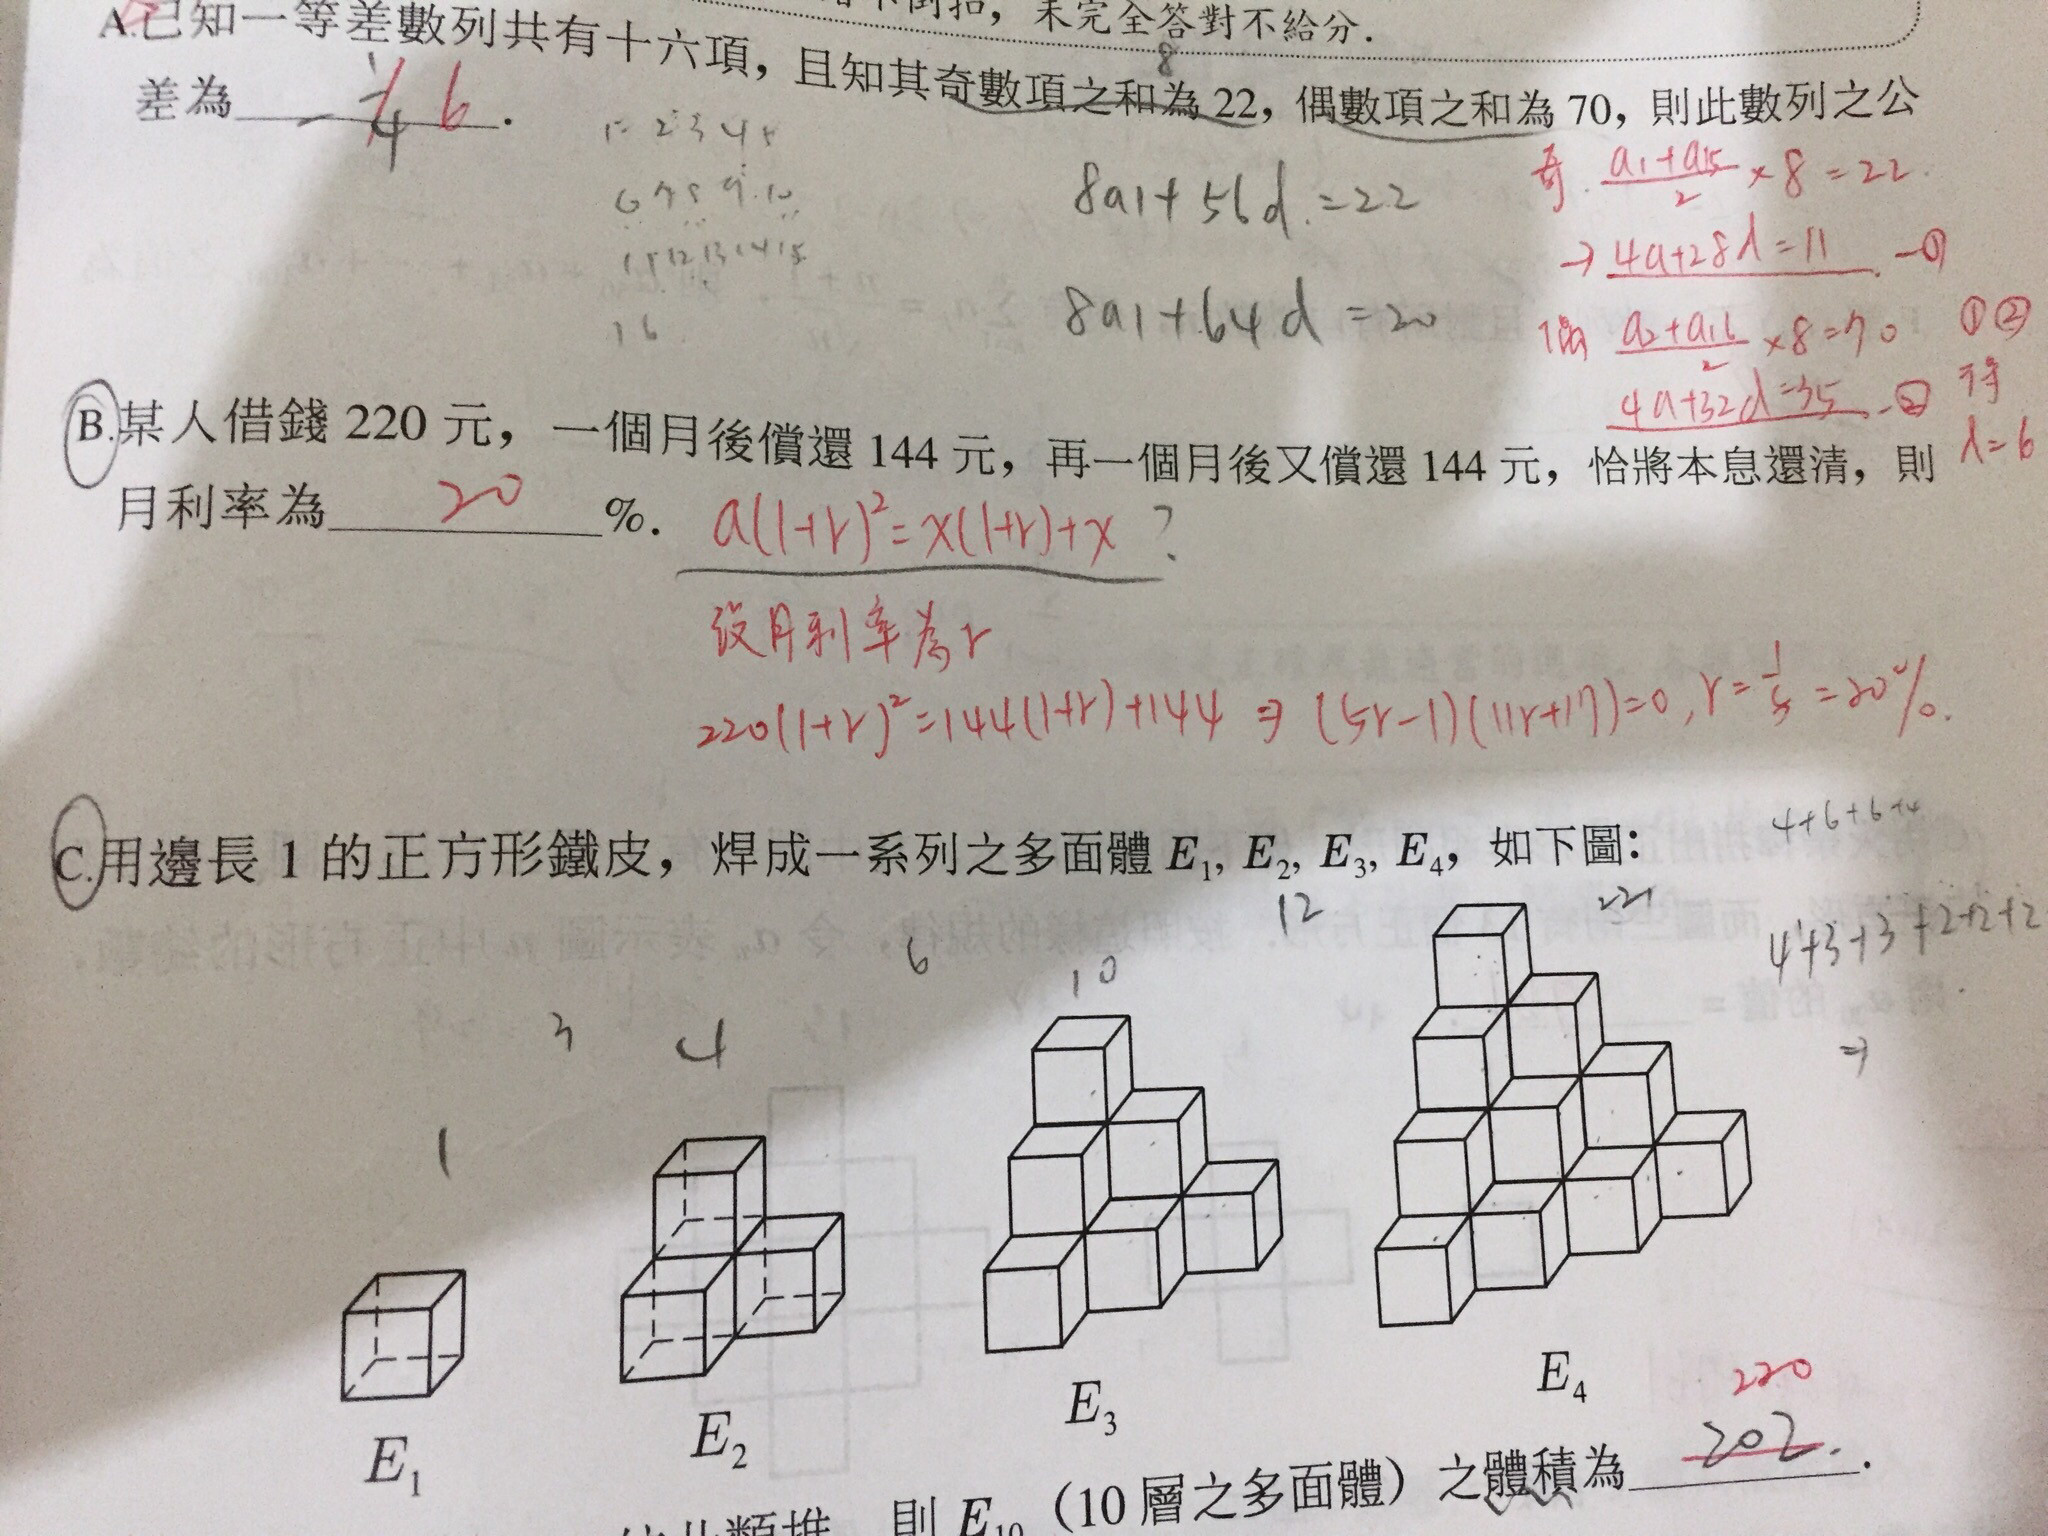 倒扣，未完全答對不給分．
A.已知一等差數列共有十六項，且知其奇數項之和為 22，偶數項之和為 70，則此數列之公
8
差為 6 ．
1 2 3 4 5
6 7 8 9 10
11 12 13 14 15
16
8a1+56d=22
8a1+64d=20
奇. (a1+a15)/2 ×8=22
→ 4a+28d=11 —①
偶 (a2+a16)/2 ×8=70
4a+32d=35 —②
①②
得
d=6
B.某人借錢 220 元，一個月後償還 144 元，再一個月後又償還 144 元，恰將本息還清，則
月利率為 20 %．
a(1+r)²=x(1+r)+x ?
設月利率為r
220(1+r)²=144(1+r)+144 ⇒ (5r-1)(11r+17)=0, r=1/5=20%.
4+6+6+4
C.用邊長 1 的正方形鐵皮，焊成一系列之多面體 E₁, E₂, E₃, E₄，如下圖：
12
4+3+3+2+2+2
⇒
6
10
3
4
1
E₁
E₂
E₃
E₄
220
則 E₁₀（10 層之多面體）之體積為 202 ．